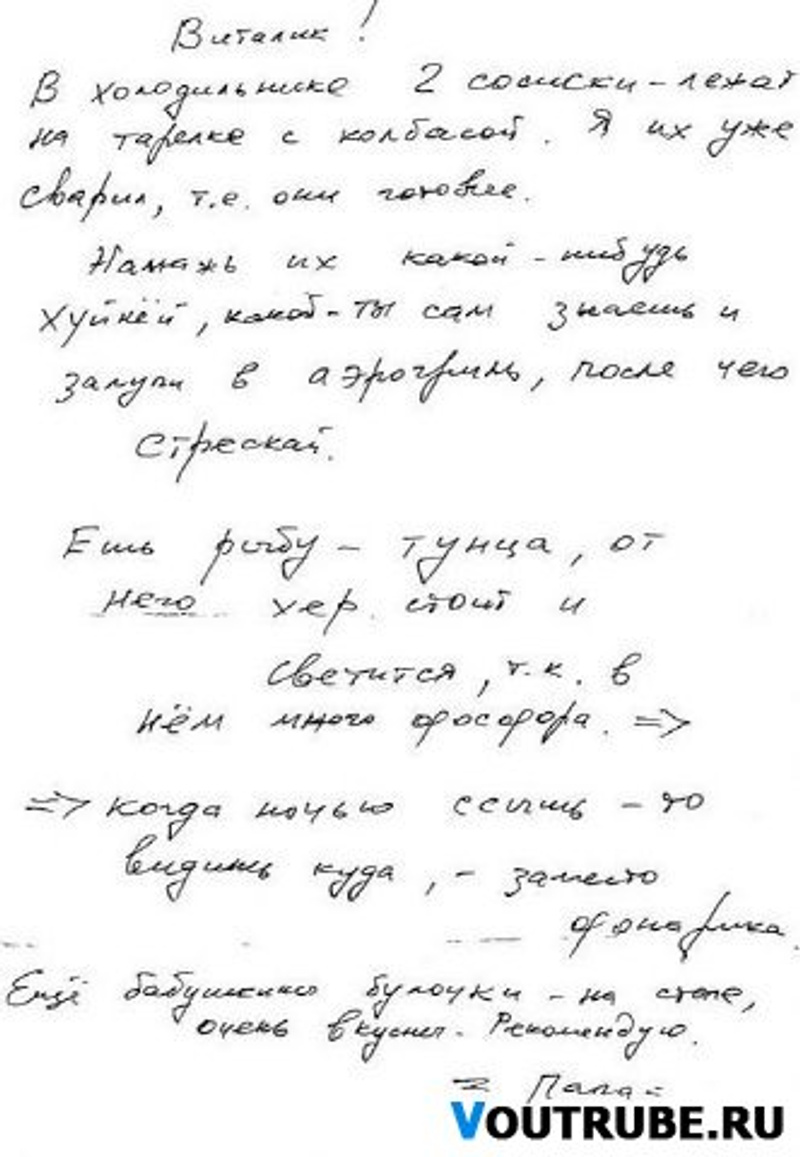 Виталик!
В холодильнике 2 сосиски - лежат
на тарелке с колбасой. Я их уже
сварил, т.е. они готовые.
Намажь их какой-нибудь
хуйнёй, какой-ты сам знаешь и
залупи в аэрогриль, после чего
стрескай.
Ешь рыбу - тунца, от
него хер стоит и
светится, т.к. в
нём много фосфора. =>
=> когда ночью ссышь - то
видишь куда, - заместо
фонарика.
Ещё бабушкины булочки - на столе,
очень вкусные. Рекомендую.
= Папа =
VOUTRUBE.RU